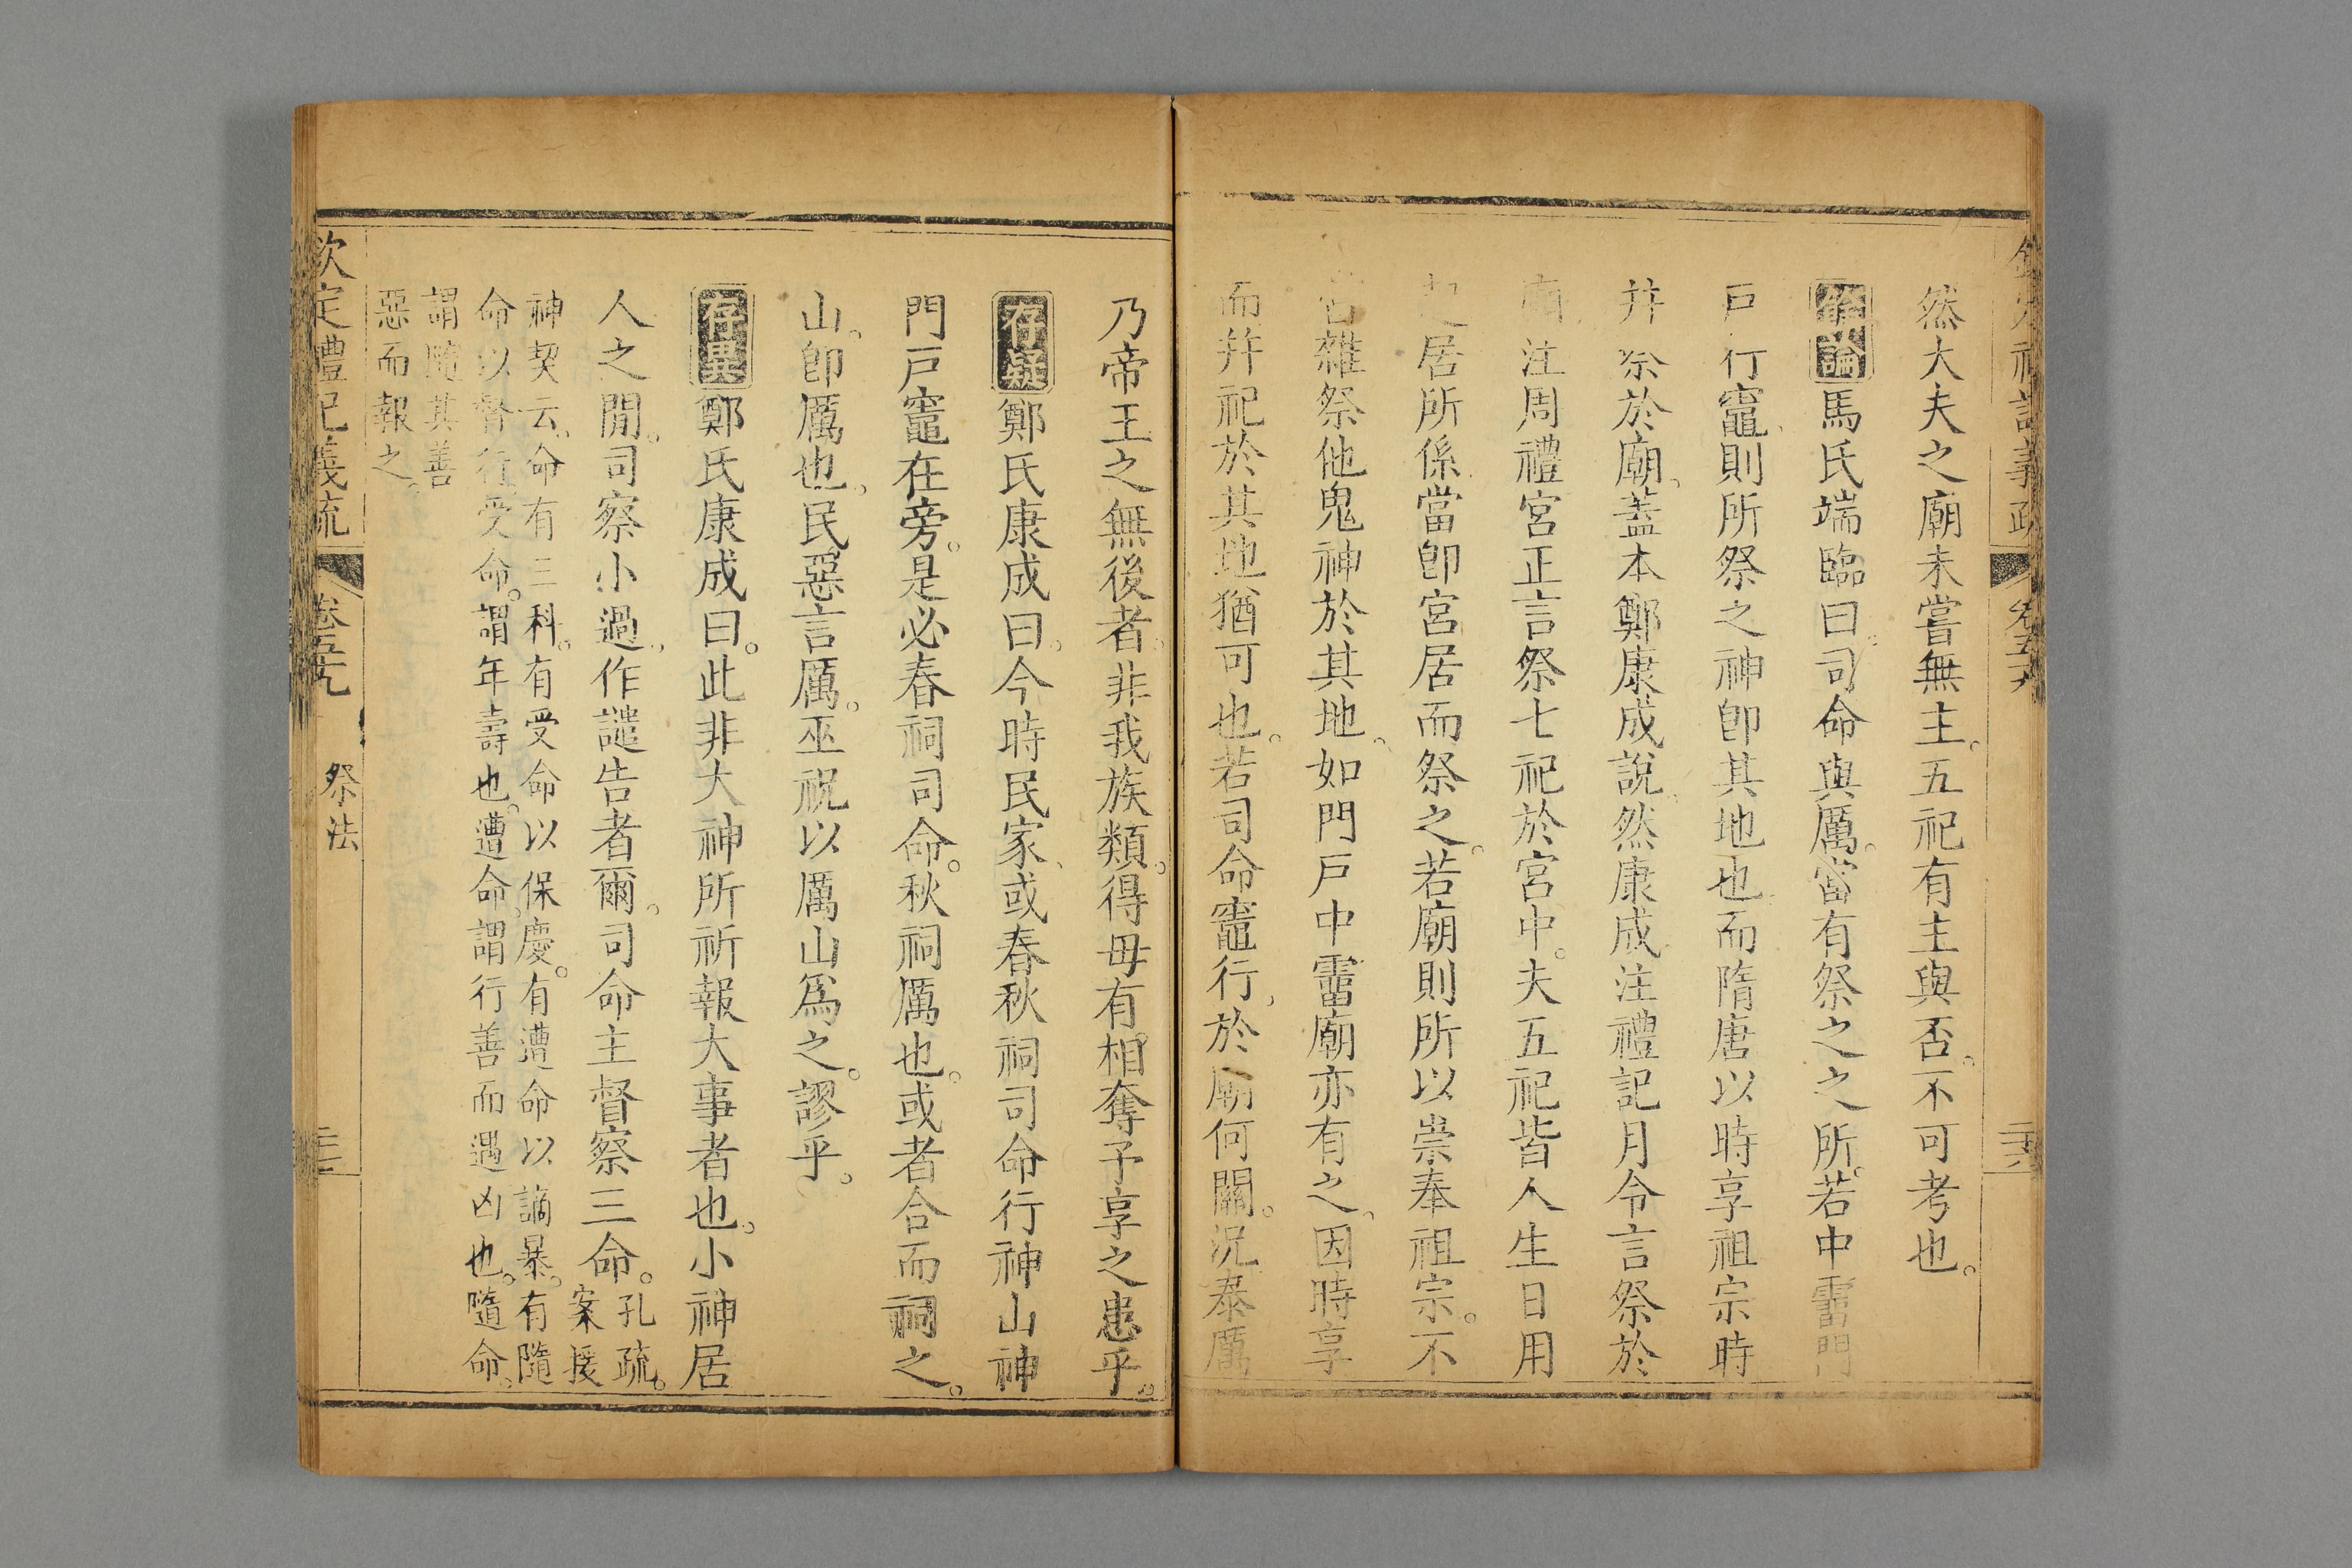 然大夫之廟未嘗無主。五祀有主與否。不可考也。
論馬氏端臨曰。司命與厲。當有祭之之所。若中霤門
戸行竈、則所祭之神卽其地也、而隋唐以時享祖宗時
幷祭於廟、蓋本鄭康成說、然康成注禮記月令言祭於
廟、注周禮宮正言祭七祀於宮中。夫五祀皆人生日用
起居所係、當卽宮居而祭之。若廟則所以崇奉祖宗。不
當雜祭他鬼神於其地、如門戸中霤、廟亦有之、因時享
而幷祀於其地、猶可也。若司命竈行、於廟何關。況泰厲
乃帝王之無後者。非我族類。得毋有相奪予享之患乎。
存疑鄭氏康成曰。今時民家、或春秋祠司命行神山神
門戸竈在旁。是必春祠司命。秋祠厲也。或者合而祠之。
山。卽厲也、民惡言厲。巫祝以厲山爲之。謬乎。
存異鄭氏康成曰。此非大神所祈報大事者也。小神居
人之閒。司察小過、作譴告者爾。司命主督察三命。孔疏。案援
神契云、命有三科。有受命以保慶。有遭命以謫暴。有隨
命以督行、受命。謂年壽也。遭命、謂行善而遇凶也。隨命。
謂隨其善
惡而報之。
欽定禮記義疏 卷五十九 祭法